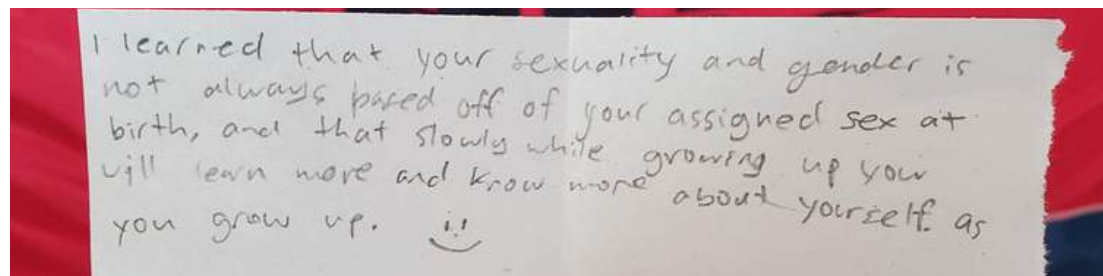 I learned that your sexuality and gender is
not always based off of your assigned sex at
birth, and that slowly while growing up you
will learn more and know more about yourself as
you grow up. :)